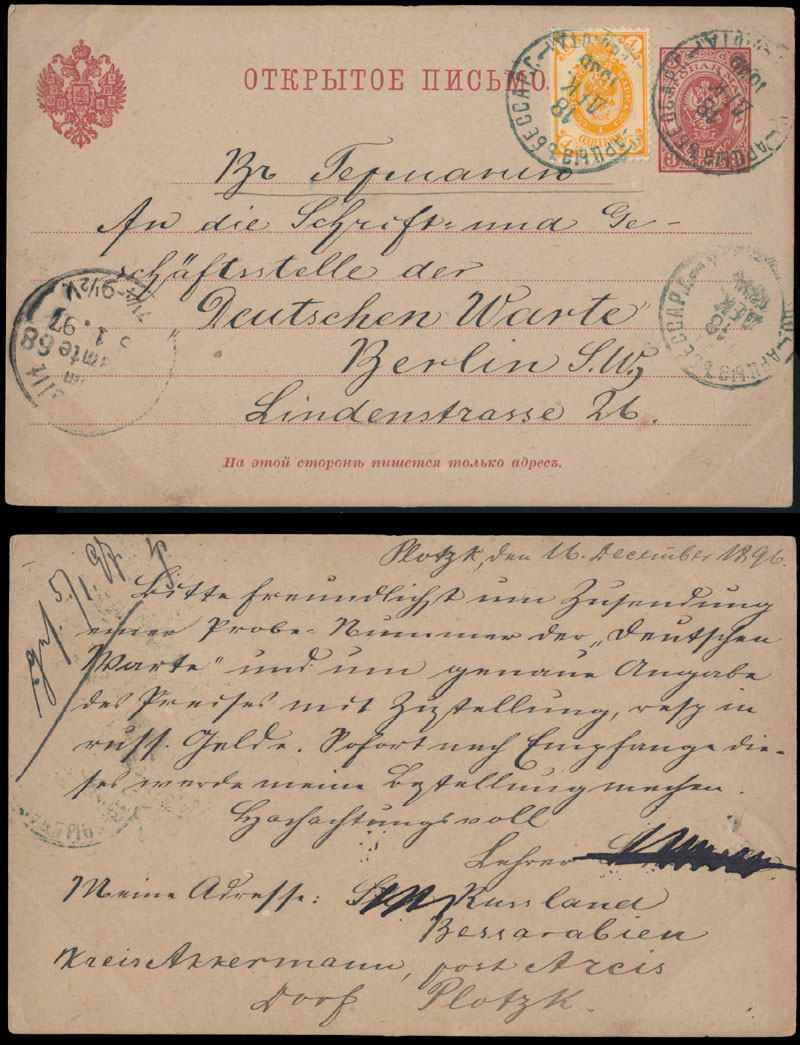 ОТКРЫТОЕ ПИСЬМО.
18
ДЕК
1896
АРЦЫЗЪ БЕССАР.
18
ДЕК
1896
АРЦЫЗЪ БЕССАР.
Въ Германию
An die Schrift- und Ge-
schäftsstelle der
„Deutschen Warte“
Berlin S.W.,
Lindenstrasse 26.
18
ДЕК
АРЦЫЗЪ БЕССАР.
7¼-9½V.
1. 97
68
На этой сторонѣ пишется только адресъ.
5/1. 97
Plotzk, den 16. December 1896.
Bitte freundlichst um Zusendung
einer Probe-Nummer der „Deutschen
Warte“ und um genaue Angabe
des Preises mit Zustellung, resp in
russ. Gelde. Sofort nach Empfange die-
ses werde meine Bestellung machen.
Hochachtungsvoll
Lehrer
Meine Adresse: Russland
Bessarabien
Kreis Akkermann, post Arcis
Dorf Plotzk.